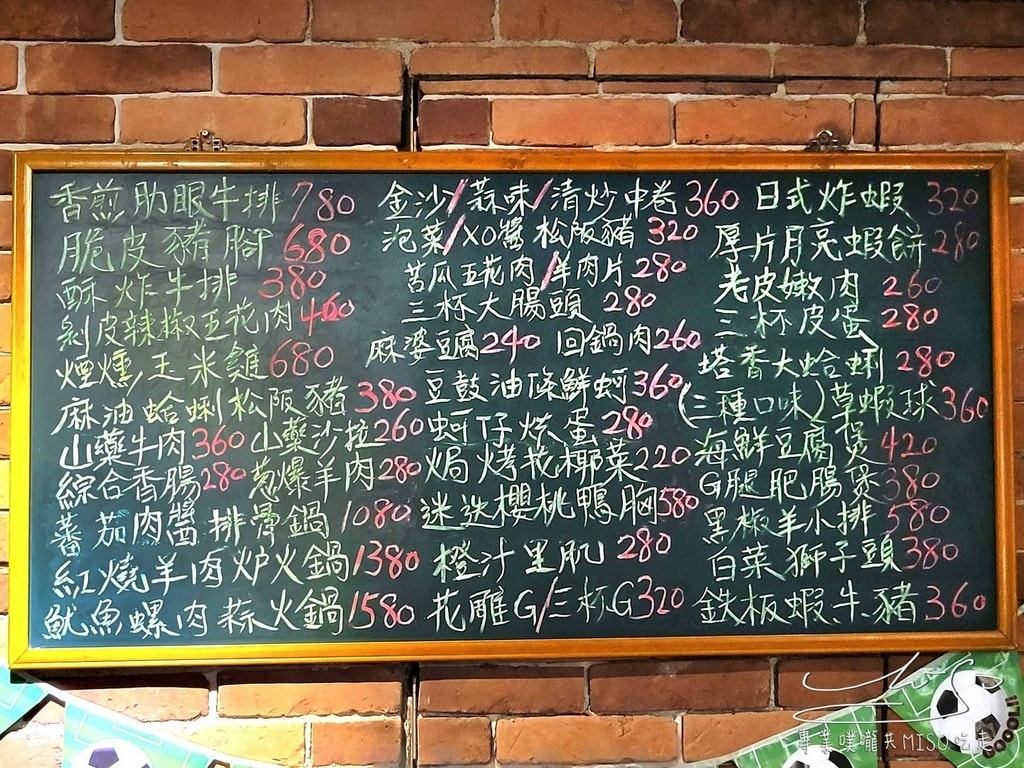 香煎肋眼牛排 780
脆皮豬腳 680
酥炸牛排 380
剝皮辣椒五花肉 420
煙燻玉米雞 680
麻油蛤蜊松阪豬 380
山藥牛肉 360 山藥沙拉 260
綜合香腸 280 蔥爆羊肉 280
蕃茄肉醬排骨鍋 1080
紅燒羊肉炉火鍋 1380
魷魚螺肉蒜火鍋 1580
金沙/蒜味/清炒中卷 360
泡菜/XO醬松阪豬 320
苦瓜五花肉/羊肉片 280
三杯大腸頭 280
麻婆豆腐 240 回鍋肉 260
豆鼓油條鮮蚵 360
蚵仔烘蛋 280
焗烤花椰菜 220
迷迭櫻桃鴨胸 580
橙汁里肌 280
花雕G/三杯G 320
日式炸蝦 320
厚片月亮蝦餅 280
老皮嫩肉 260
三杯皮蛋 280
塔香大蛤蜊 280
(三種口味)草蝦球 360
海鮮豆腐煲 420
G腿肥腸煲 380
黑椒羊小排 580
白菜獅子頭 380
鉄板蝦、牛、豬 360
專業噗嚨共MISO吃走